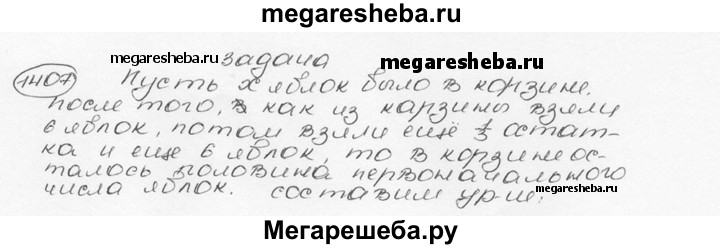 megaresheba.ru
megaresheba.ru задача megaresheba.ru
1407 Пусть x яблок было в корзине.
После того, как из карзины взяли
6 яблок, потом взяли ещё 1/3 остат-
ка и еще 6 яблок, то в корзине ос-
талось половина первоначального
числа яблок. Составим ур-ие:
Мегарешеба.ру